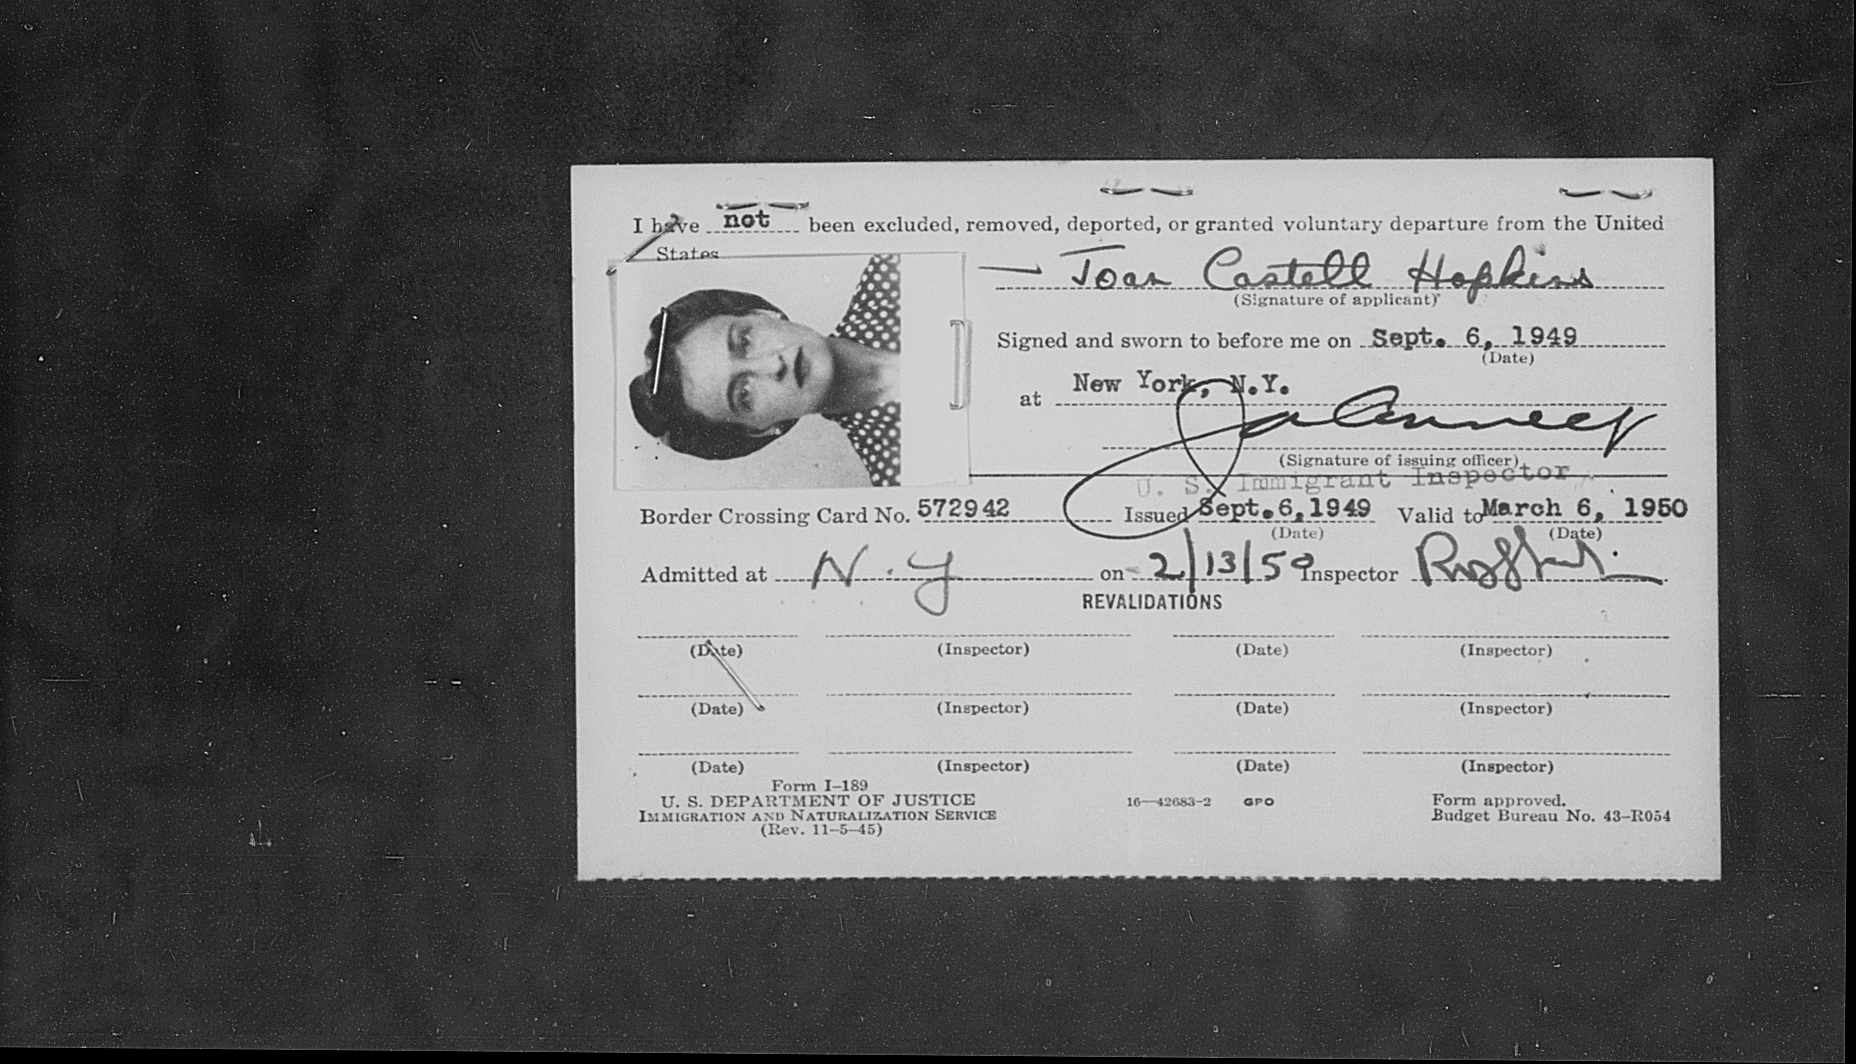 I have not been excluded, removed, deported, or granted voluntary departure from the United
States
Joan Castell Hopkins
(Signature of applicant)
Signed and sworn to before me on Sept. 6, 1949
(Date)
at New York, N.Y.
(Signature of issuing officer)
U. S. Immigrant Inspector
Border Crossing Card No. 572942 Issued Sept. 6, 1949 Valid to March 6, 1950
(Date) (Date)
Admitted at N.Y on 2/13/50 Inspector
REVALIDATIONS
(Date) (Inspector) (Date) (Inspector)
(Date) (Inspector) (Date) (Inspector)
(Date) (Inspector) (Date) (Inspector)
Form I-189
U. S. DEPARTMENT OF JUSTICE 16—42683-2 GPO Form approved.
IMMIGRATION AND NATURALIZATION SERVICE Budget Bureau No. 43-R054
(Rev. 11-5-45)